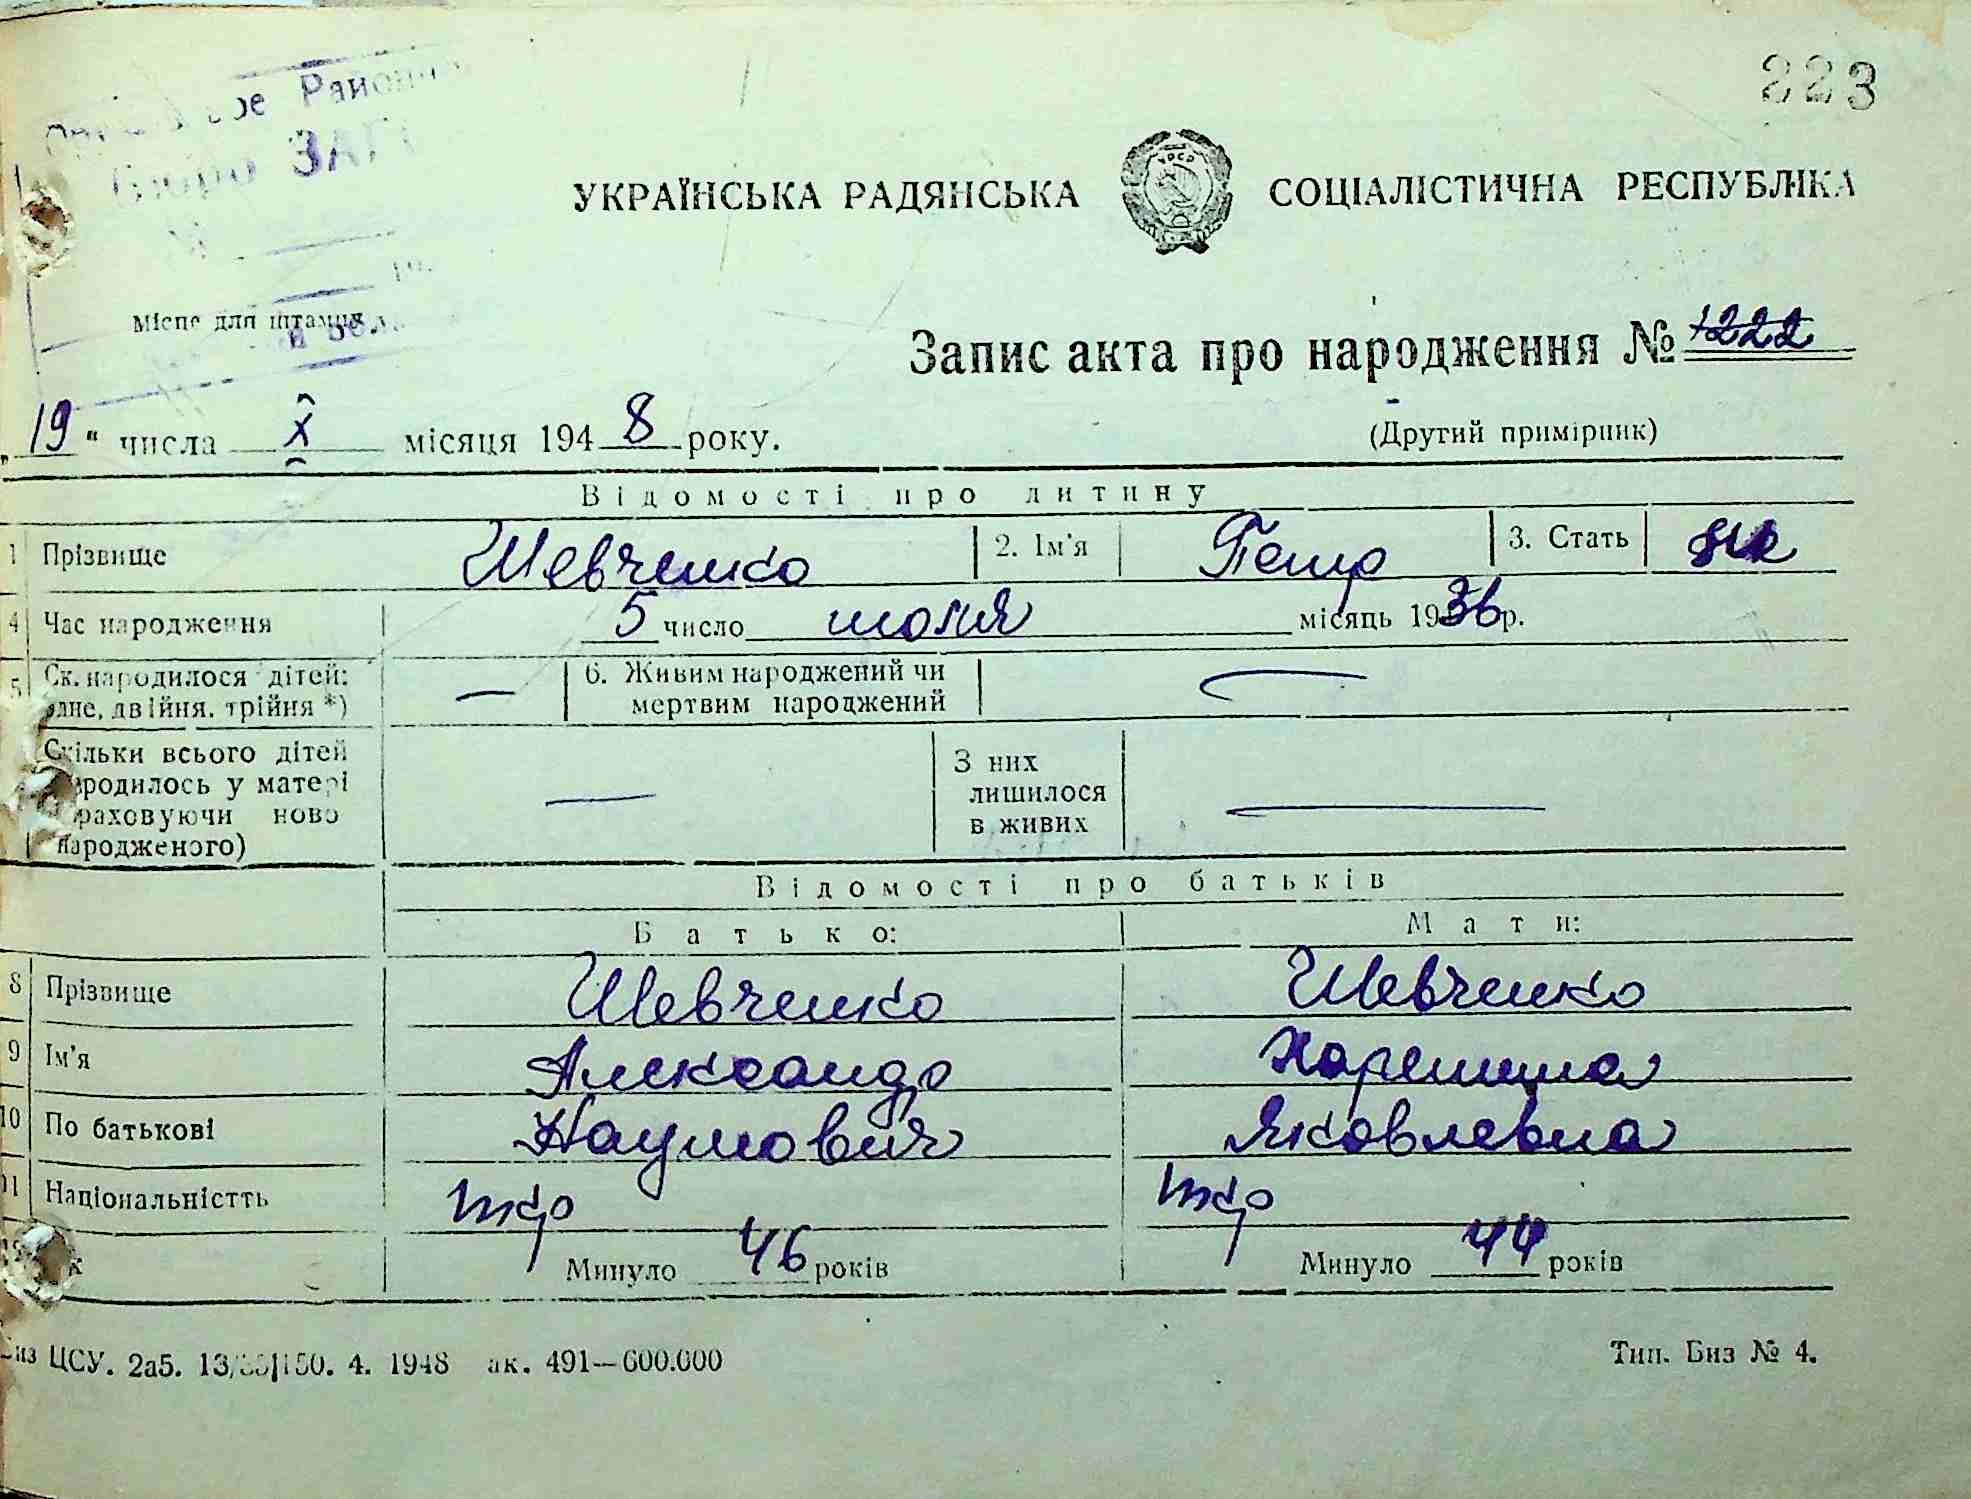 223
Бюро ЗАГС
УКРАЇНСЬКА РАДЯНСЬКА СОЦІАЛІСТИЧНА РЕСПУБЛІКА
УРСР
Місце для штампа
Запис акта про народження № 1222
„19“ числа X місяця 1948 року.
(Другий примірник)
Відомості про дитину
1 Прізвище Шевченко 2. Ім'я Петр 3. Стать
4 Час народження 5 число июля місяць 1936 р.
5 Ск. народилося дітей: одне, двійня, трійня *) — 6. Живим народжений чи мертвим народжений —
Скільки всього дітей народилось у матері враховуючи ново народженого) — З них лишилося в живих —
Відомості про батьків
Батько: Мати:
8 Прізвище Шевченко Шевченко
9 Ім'я Александр
10 По батькові Наумович Яковлевна
11 Національністть укр укр
Минуло 46 років Минуло 44 років
ЦСУ. 2а5. 150. 4. 1948 ак. 491—600.000 Тип. Биз № 4.